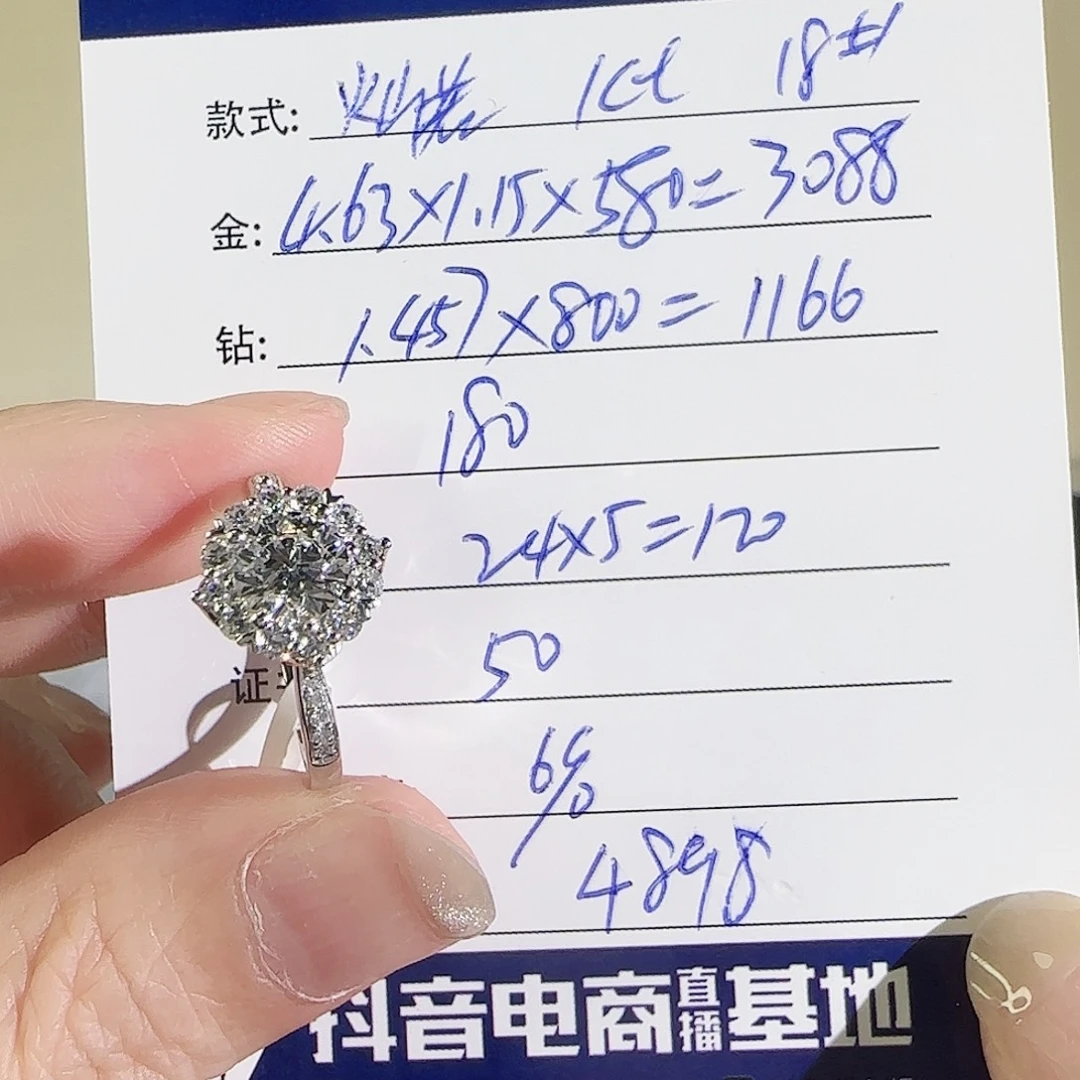 款式: 1ct 18#
金: 4.63×1.15×580=3088
钻: 1.457×800=1166
180
24×5=120
证 50
6%
4898
抖音电商直播基地